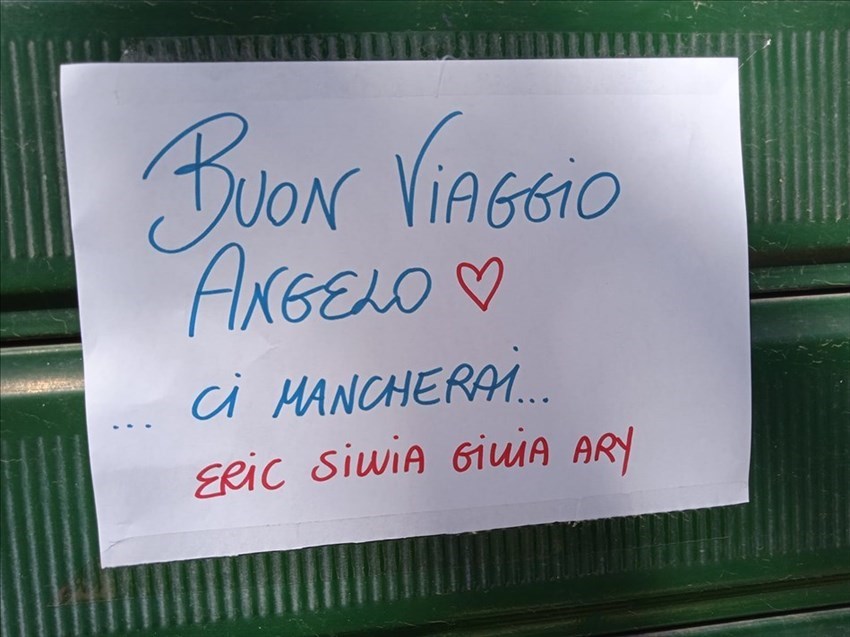 BUON VIAGGIO
ANGELO ♡
... Ci MANCHERAi...
ERiC SiLViA GiULiA ARY